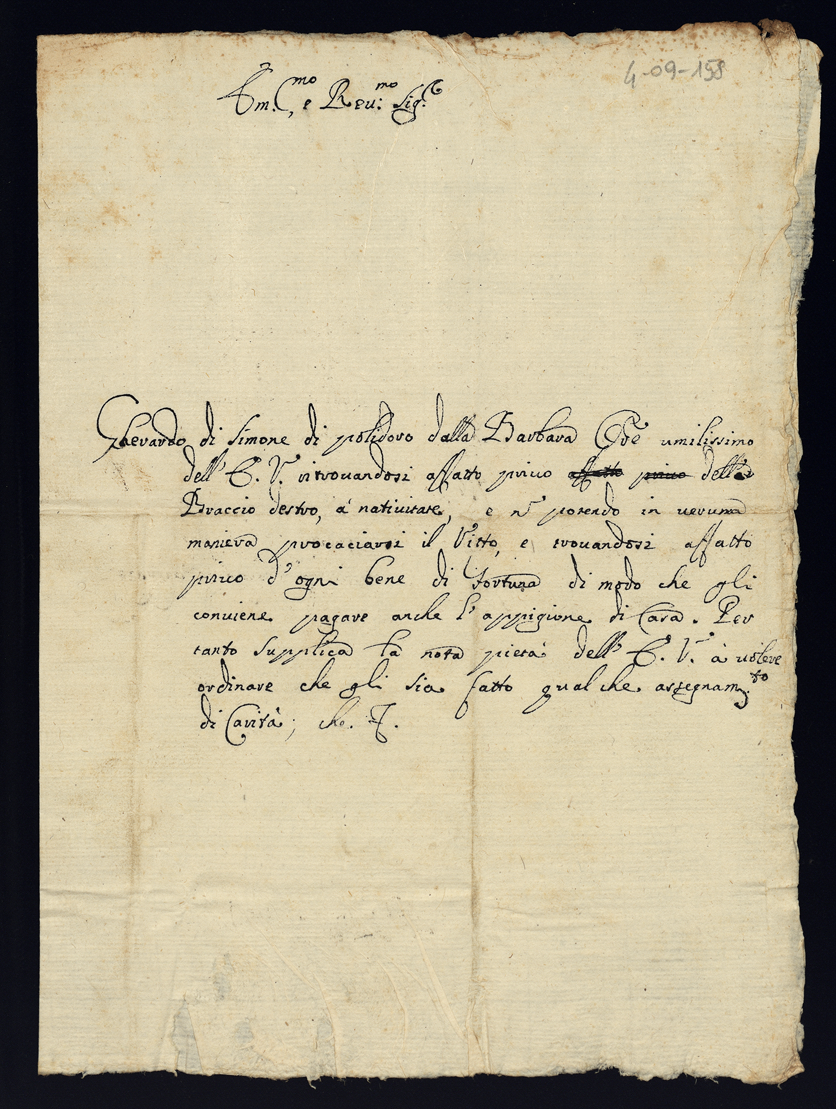 4-09-158
Em.mo, e Reu:mo Sig.e
Gherardo di Simone di polidoro dalla Barbara Ore umilissimo
dell' E. V. ritrouandosi affatto priuo affatto priuo della
Braccio destro, a' natiuitate, e no potendo in ueruna
maniera procaciarsi il Vitto, e trouandosi affatto
priuo d'ogni bene di fortuna di modo che gli
conuiene pagare anche l'appigione di Casa. Per
tanto supplica la nota pietà dell' E. V. à uolere
ordinare che gli sia fatto qualche assegnam.to
di Carità; che